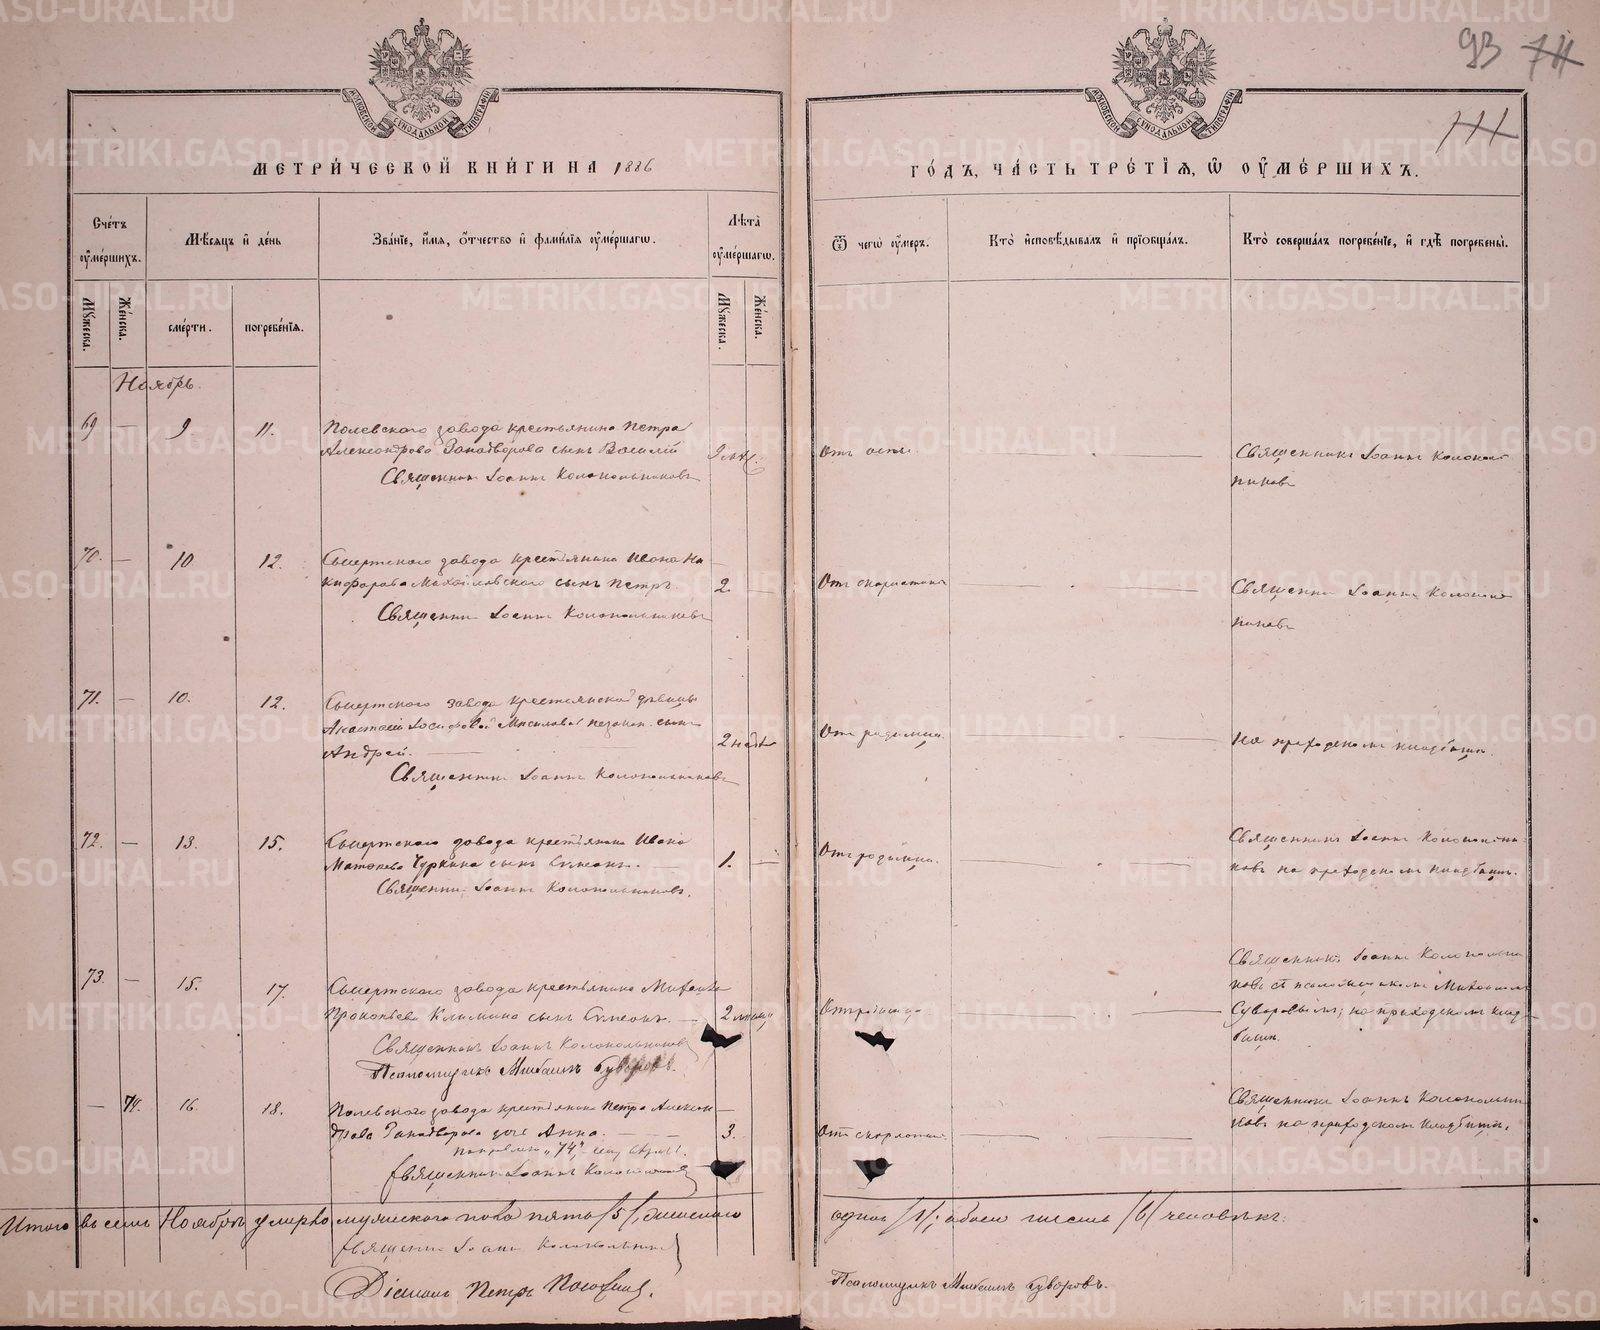 93 74
МОСКОВСКОЙ СѴНОДАЛЬНОЙ ТИПОГРАФІИ
МОСКОВСКОЙ СѴНОДАЛЬНОЙ ТИПОГРАФІИ
МЕТРИ́ЧЕСКОЙ КНИ́ГИ НА 1886
ГО́ДЪ, ЧА́СТЬ ТРЕ́ТІЯ, Ѿ ОУМЕ́РШИХЪ.
Сче́тъ оумершихъ.
Мужеска.
Же́нска.
Мѣсяцъ и де́нь
сме́рти.
погребе́нія.
Зва́ніе, и́мя, о́тчество и фами́лія оуме́ршагѡ.
Лѣта̀ оуме́ршагѡ.
Мужеска.
Же́нска.
Ѿ чегѡ̀ оу́меръ.
Кто̀ исповѣ́дывалъ и пріобща́лъ.
Кто̀ соверша́лъ погребе́ніе, и гдѣ̀ погребены̀.
Ноябрь.
69 — 9 11.
Полевскаго завода крестьянина Петра
Александрова сынъ Василій
Священникъ Іоаннъ Колокольниковъ
Отъ
Священникъ Іоаннъ Колоколь
никовъ
70. — 10 12.
Сысертскаго завода крестьянина Ивана Ни
кифорова сынъ Петръ
2. —
Священникъ Іоаннъ Колокольниковъ
Отъ скарлатины
Священникъ Іоаннъ Колоколь
никовъ
71. — 10. 12.
Сысертскаго завода крестьянской дѣвицы
незакон. сынъ
Андрей.
2 недѣли
Священникъ Іоаннъ Колокольниковъ
Отъ родимца.
На приходскомъ кладбищѣ.
72. — 13. 15.
Сысертскаго завода крестьянина Ивана
Чуркина сынъ Симеонъ.
1. —
Священникъ Іоаннъ Колокольниковъ.
Отъ родимца.
Священникъ Іоаннъ Колокольни
ковъ на приходскомъ кладбищѣ.
73. — 15. 17.
Сысертскаго завода крестьянина
Прокопьева Климина сынъ Симеонъ. —
2
Священникъ Іоаннъ Колокольниковъ
Псаломщикъ Михаилъ Суворовъ.
Отъ родимца
Священникъ Іоаннъ Колокольни
ковъ съ псаломщикомъ Михаиломъ
Суворовымъ; на приходскомъ клад
бищѣ.
— 74. 16. 18.
Полевскаго завода крестьянина Петра Алексан
дрова дочь Анна. —
3.
"74,"
Священникъ Іоаннъ
Отъ скарлатины
Священникъ Іоаннъ Колокольни
ковъ на приходскомъ кладбищѣ.
Итого въ семъ Ноябрѣ умерло мужескаго пола пять /5/, женскаго
одинъ /1/; обоего шесть /6/ человѣкъ.
Священникъ Іоаннъ Колокольниковъ
Діаконъ Петръ
Псаломщикъ Михаилъ Суворовъ.
METRIKI.GASO-URAL.RU